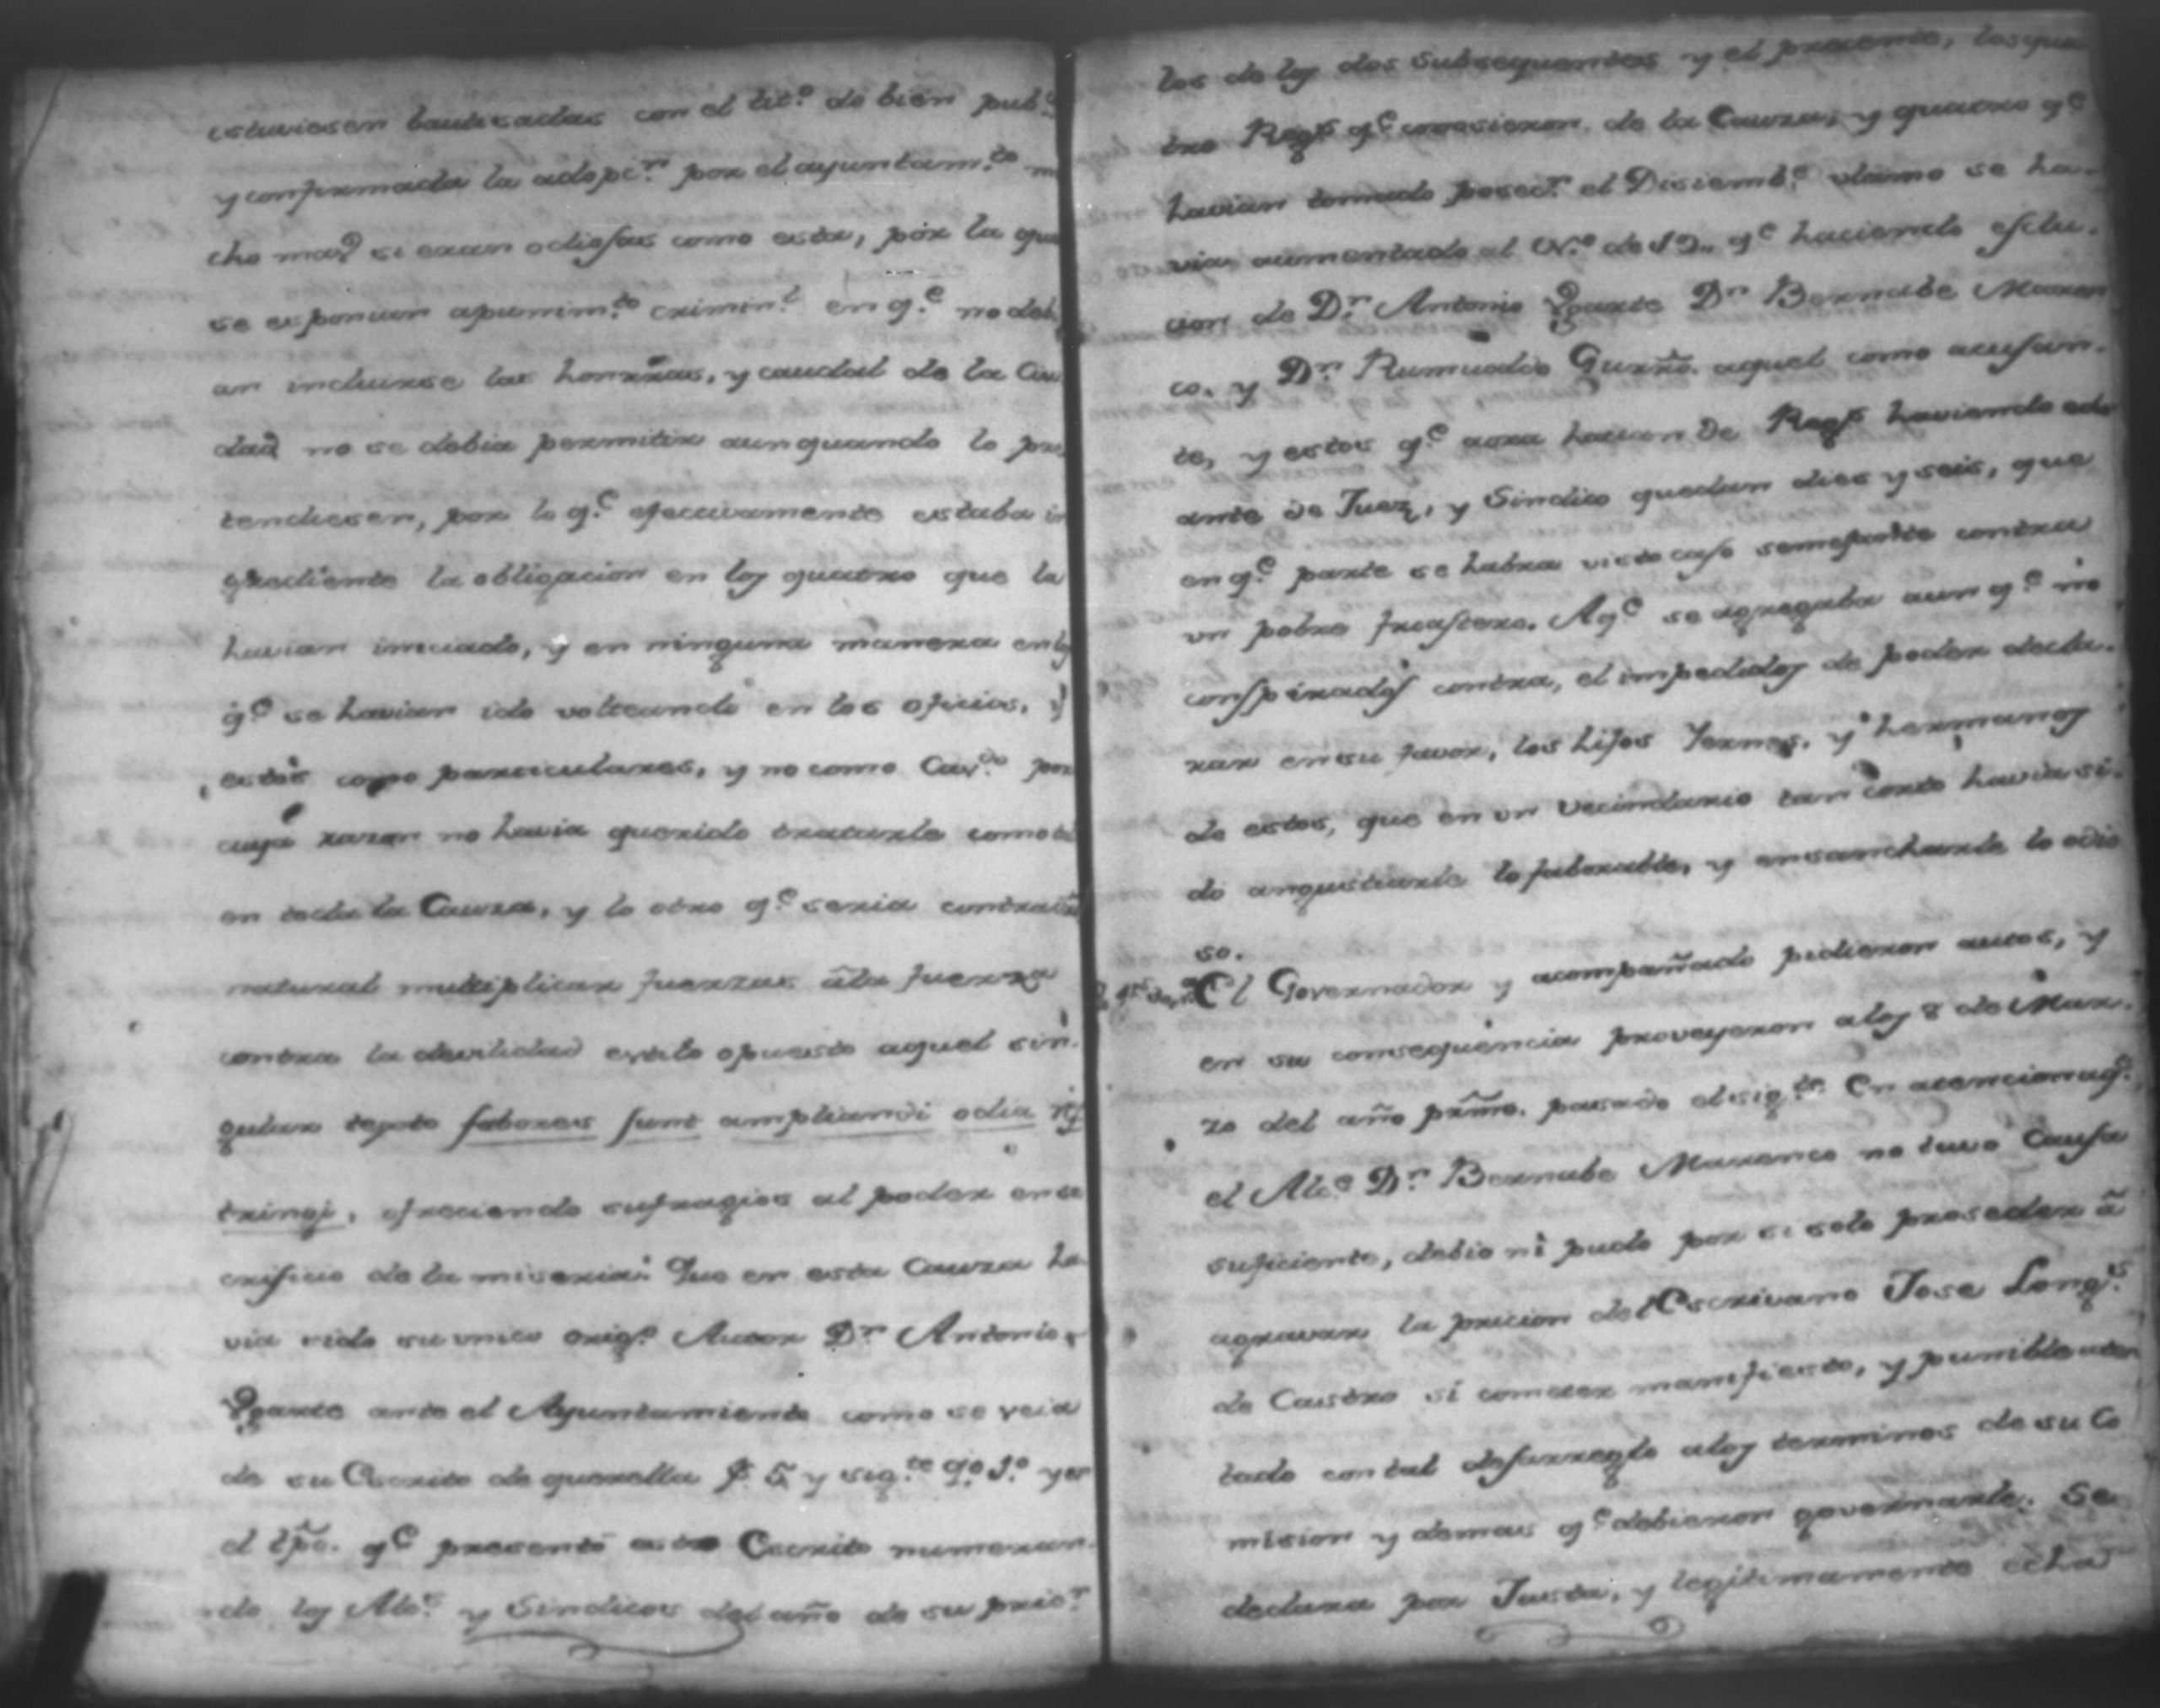 estuviesen bautisadas con el tit.º de bien pub.º
y confirmada la adopc.n por el ayuntam.to m
cho mas si eran odiosas como esta, por la que
se esponian apunim.to crimin.l en q.e no deb
an incluirse las honrras, y caudal de la Ciu
dad no se debia permitir aunquando lo pre
tendiesen, por lo q.e efectivamente estaba in
grediente la obligacion en los quatro que la
havian iniciado, y en ninguna manera en los
q.e se havian ido volteando en los oficios, y
estos como particulares, y no como Cav.do por
cuya razon no havia querido tratarle como tal
en toda la Cauza, y lo otro q.e seria contra
natural multiplicar fuerzas â la fuerza
contra la devilidad estilo opuesto aquel sin-
gular testo fabores sunt ampliandi odia
tringi, ofreciendo sufragios al poder en sa
crificio de la miseria: Que en esta Cauza ha-
via sido su unico orig.l Autor D.n Antonio
Ugarte ante el Ayuntamiento como se veia
de su Escrito de querella f. 5 y sig.te q.º 1.º y en
el tpõ. q.e presentó este Escrito numeran-
do los Alc.s y Sindicos del año de su pric.n
los de los dos subsequentes y el precente, los qua
tro Reg.s q.e conosieron de la Cauza, y quatro q.e
havian tomado posec.n el Diciemb.e ultimo se ha-
via aumentado al N.º de 19. q.e haciendo esclu-
cion de D.n Antonio Ugarte D.n Bernabe Maran
co. y D.n Rumualdo aquel como acusan-
te, y estos q.e aora hacian de Reg.s haviendolo
ante de Juez, y Sindico quedan dies y seis, que
en q.e parte se habra visto caso semejante contra
un pobre frastero. Aq.e se agregaba aun q.e no
conspirados contra, el impedidos de poder decla-
rar en su favor, los hijos Yernos, y hermanos
de estos, que en un Vecindario tan corto havia si-
do angustiarle lo faborable, y ensancharle lo odio
so.
El Governador y acompañado pidieron autos, y
en su consequencia proveyeron a los 8 de Mar-
zo del año prmõ. pasado el sig.te En atencion aq.e
el Alc.e D.n Bernabe Maranco no tuvo Causa
suficiente, debio ni pudo por si solo proseder â
agravar la pricion del Escrivano Jose Long.s
de Castro si cometer manifiesto, y punible aten
tado con tal desarreglo a los terminos de su Co
mision y demas q.e debieron governarle. Se
declara por Justa, y legitimamente echa